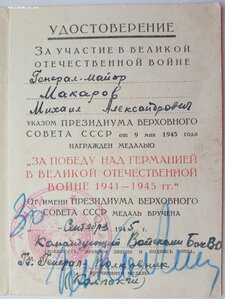 УДОСТОВЕРЕНИЕ
ЗА УЧАСТИЕ В ВЕЛИКОЙ
ОТЕЧЕСТВЕННОЙ ВОЙНЕ
Генерал-майор
Макаров
Михаил Александрович
УКАЗОМ ПРЕЗИДИУМА ВЕРХОВНОГО
СОВЕТА СССР от 9 мая 1945 года
НАГРАЖДЕН МЕДАЛЬЮ
„ЗА ПОБЕДУ НАД ГЕРМАНИЕЙ
В ВЕЛИКОЙ ОТЕЧЕСТВЕННОЙ
ВОЙНЕ 1941—1945 гг."
ОТ ИМЕНИ ПРЕЗИДИУМА ВЕРХОВНОГО
СОВЕТА СССР МЕДАЛЬ ВРУЧЕНА
30 Сентября 1945 г.
Командующий Войсками БакВО
Генерал Полковник
Колпакчи